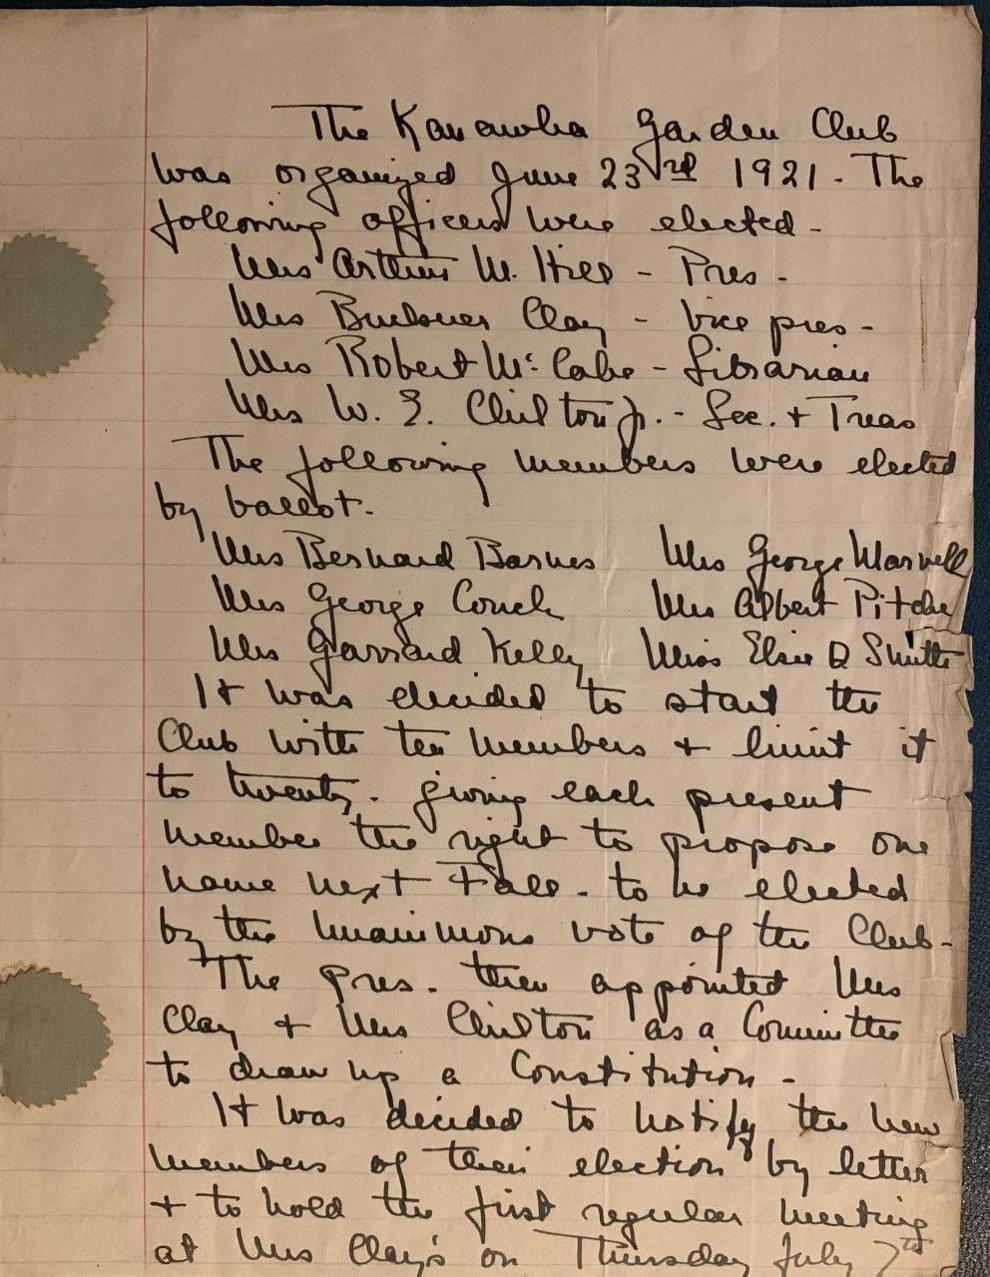 The Kanawha Garden Club
was organized June 23rd 1921. The
following officers were elected -
Mrs Arthur M. Hill - Pres -
Mrs Buckner Clay - Vice pres -
Mrs Robert McCabe - Librarian
Mrs W. E. Chilton Jr. - Sec. + Treas
The following members were elected
by ballot.
Mrs Bernard Barnes Mrs George Maxwell
Mrs George Couch Mrs Albert Pitcher
Mrs Garrard Kelly Miss Elsie Q Smith
It was decided to start the
Club with ten members + limit it
to twenty. giving each present
member the right to propose one
name next Fall - to be elected
by the unanimous vote of the Club -
The pres. then appointed Mrs
Clay + Mrs Chilton as a Committee
to draw up a Constitution -
It was decided to notify the new
members of their election by letter
+ to hold the first regular meeting
at Mrs Clay's on Thursday July 7th